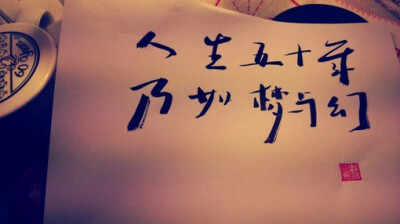 人生五十年
乃如梦与幻